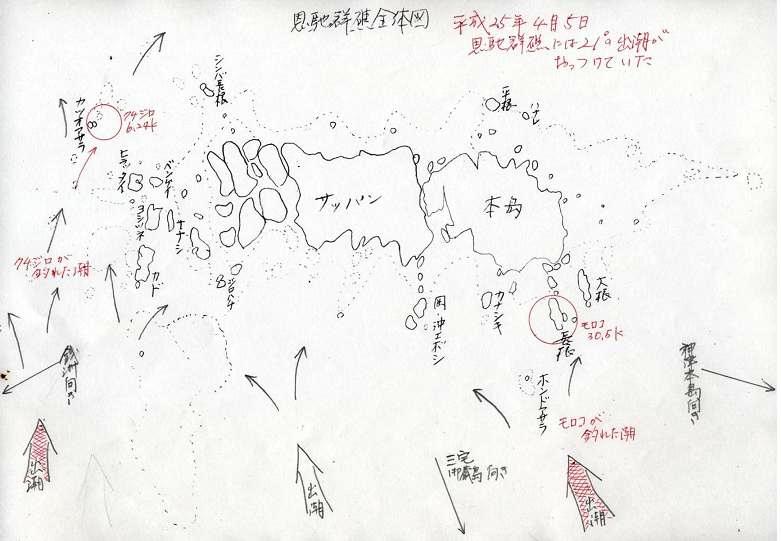 恩馳群礁全体図
平成25年4月5日
恩馳群礁には21°の出潮が
おっつけていた
シンバ長根
平根
ハナレ
カツオアサラ
クチジロ
6.24k
ヒラッタイ
ベンケイ
ヨコバネ
サナシ
サッパン
本島
カド
クチジロが
釣れた潮
沖エボシ
カナシキ
大根
長根
モロコ
30.5k
ホンドアサラ
銭洲向き
神津本島向き
モロコが
釣れた潮
三宅
御蔵島向き
出潮
出潮
出潮